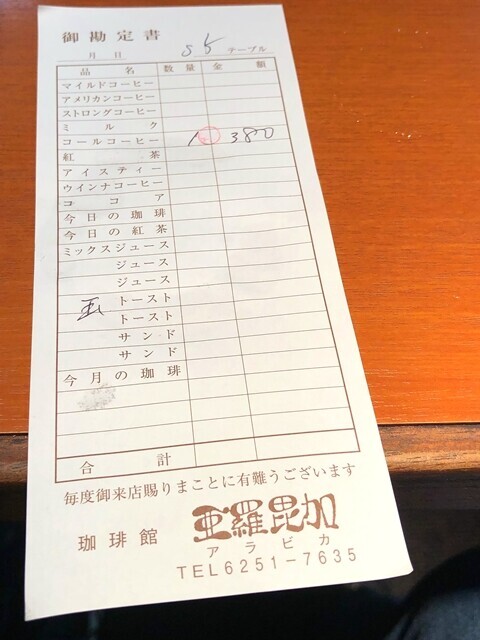 御勘定書
月 日 S5 テーブル
品名 数量 金額
マイルドコーヒー
アメリカンコーヒー
ストロングコーヒー
ミルク
コールコーヒー 1 380
紅茶
アイスティー
ウインナコーヒー
ココア
今日の珈琲
今日の紅茶
ミックスジュース
ジュース
ジュース
玉 トースト
トースト
サンド
サンド
今月の珈琲
合計
毎度御来店賜りまことに有難うございます
珈琲館 亜羅毘加
アラビカ
TEL6251-7635